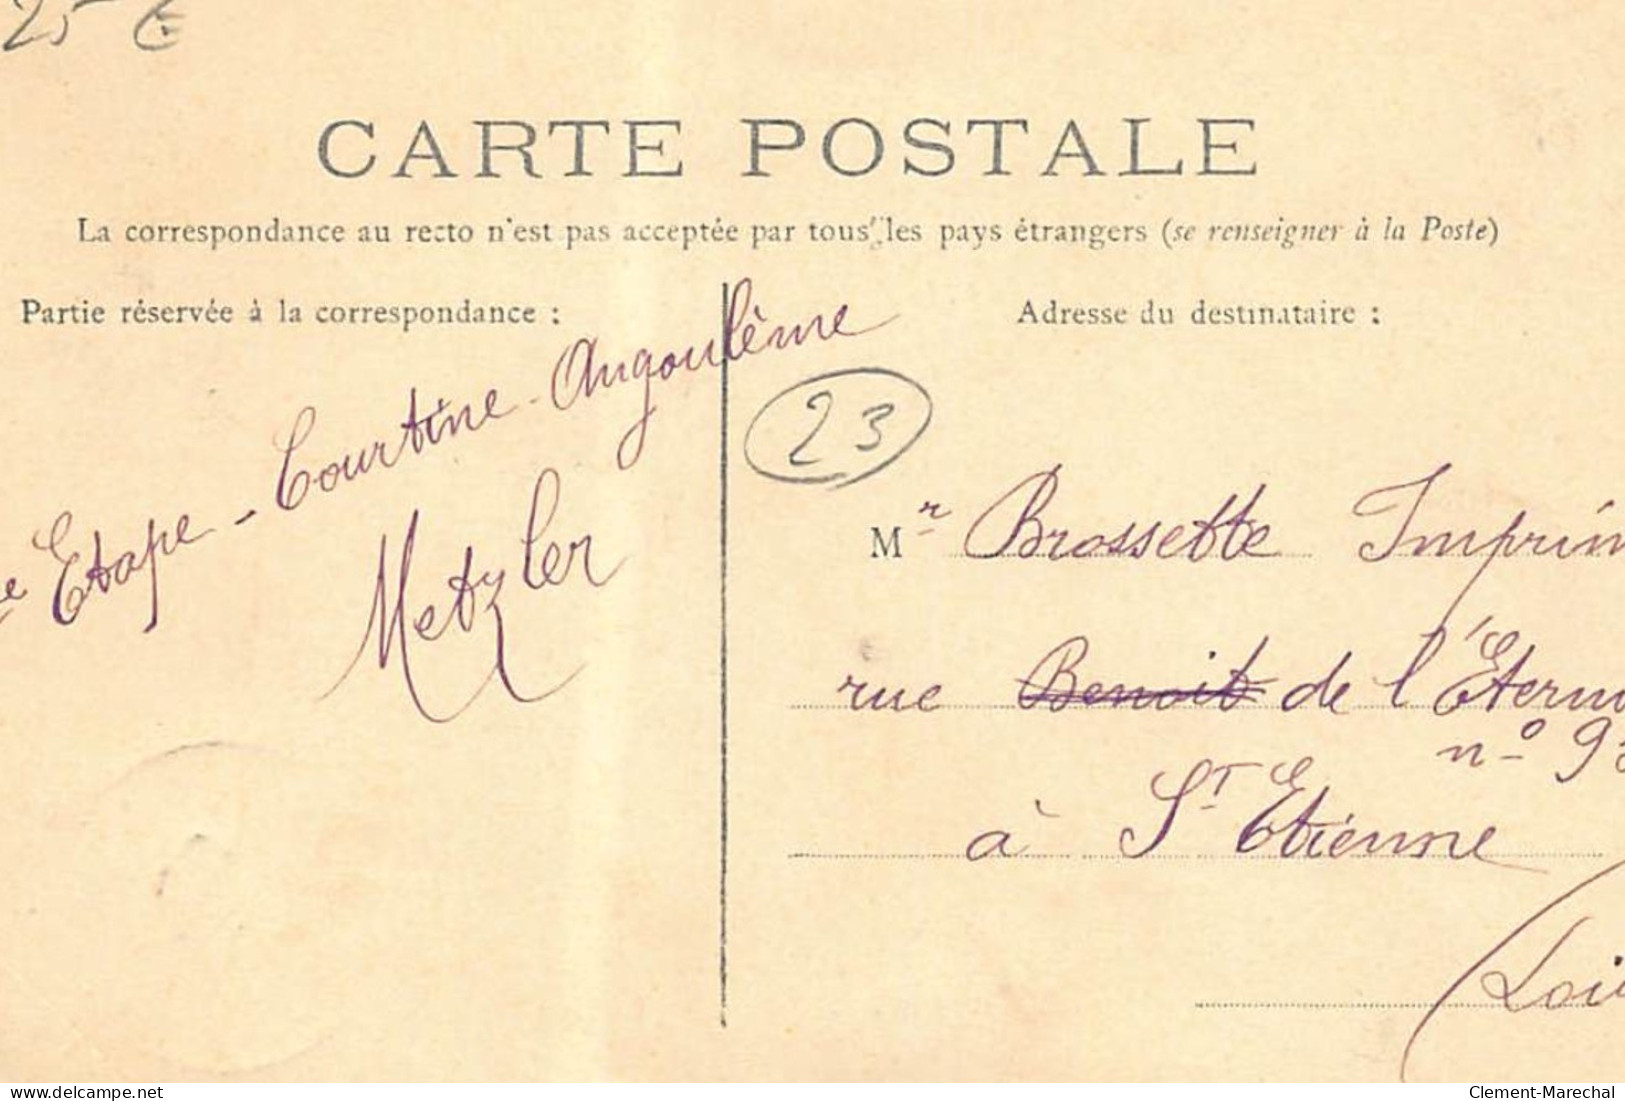 25 €
CARTE POSTALE
La correspondance au recto n'est pas acceptée par tous les pays étrangers (se renseigner à la Poste)
Partie réservée à la correspondance :
Adresse du destinataire :
e Etape - Courtine - Angoulême
Metzler
23
Mr Brossette Imprim
rue Benoit de l'Étern
n° 93
à St Etienne
Loi
delcampe.net
Clement-Marechal